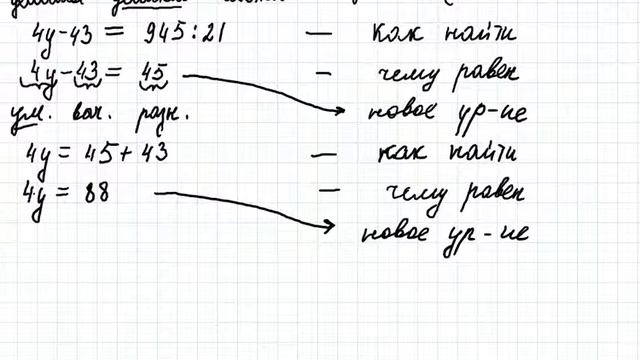 4y-43 = 945:21 — как найти
4y-43 = 45 — чему равен
ум. выч. разн. новое ур-ие
4y = 45+43 — как найти
4y = 88 — чему равен
новое ур-ие